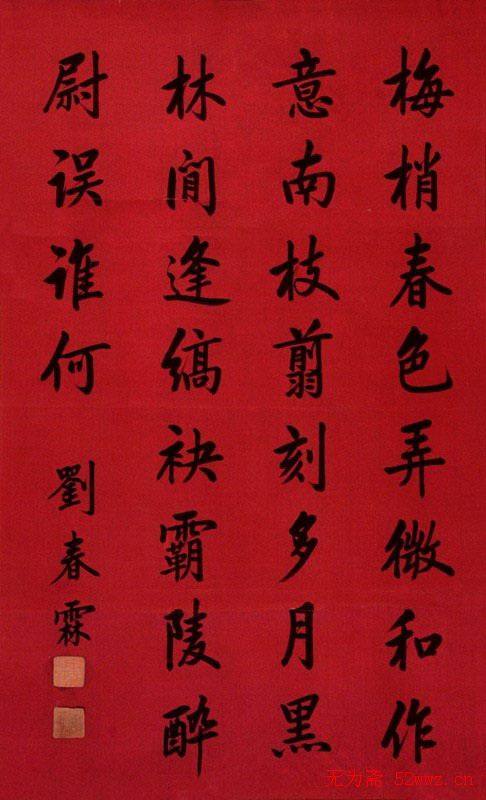 梅梢春色弄微和作
意南枝翦刻多月黑
林間逢縞袂霸陵醉
尉误谁何
劉春霖
无为斋 52wwz.cn